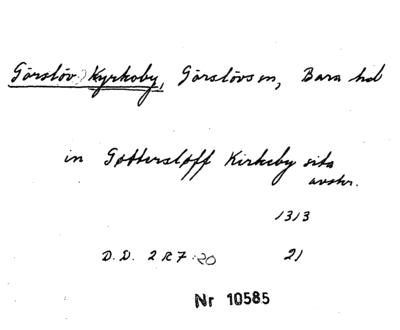 Görslöv Kyrkoby, Görslövs sn, Bara hd
in Gøttersløff Kirkeby sita
avskr.
1313
D.D. 2 R 7:20 21
Nr 10585